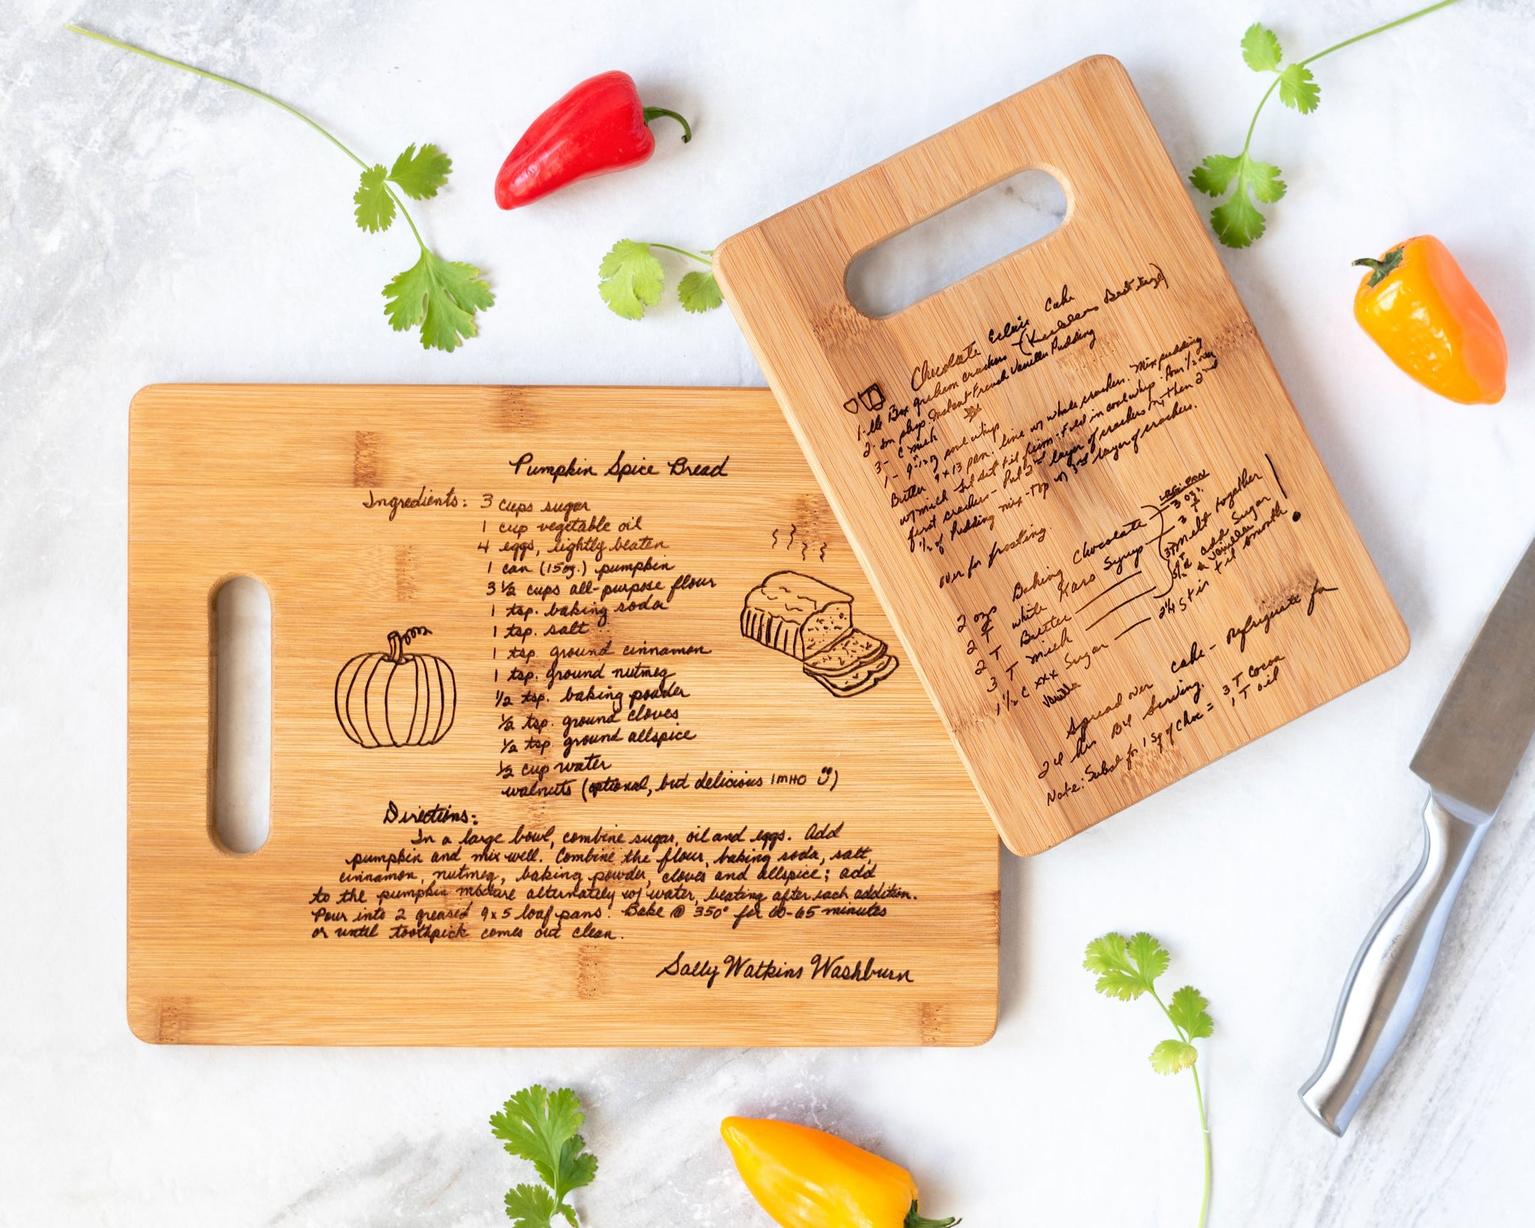 Pumpkin Spice Bread
Ingredients: 3 cups sugar
1 cup vegetable oil
4 eggs, lightly beaten
1 can (15oz.) pumpkin
3 ½ cups all-purpose flour
1 tsp. baking soda
1 tsp. salt
1 tsp ground cinnamon
1 tsp. ground nutmeg
½ tsp. baking powder
½ tsp. ground cloves
½ tsp ground allspice
½ cup water
walnuts (optional, but delicious IMHO
Directions:
In a large bowl, combine sugar, oil and eggs. Add
pumpkin and mix well. Combine the flour, baking soda, salt,
cinnamon, nutmeg, baking powder, cloves and allspice; add
to the pumpkin mixture alternately w/ water, beating after each addition.
Pour into 2 greased 9x5 loaf pans. Bake @ 350° for 60-65 minutes
or until toothpick comes out clean.
Sally Watkins Washburn
Chocolate Eclair Cake
1-lb Box graham crackers (Keeblers Best size)
2- sm pkgs Instant French Vanilla Pudding
3- C milk
1- 9 oz cool whip
Butter 9x13 pan. line w/ whole crackers. Mix pudding
w/ milk let set til firm. fold in cool whip. Pour ½ over
first crackers- Put 2nd layer of crackers, then 2nd
½ of Pudding mix-Top w/ 3rd layer of crackers.
over for frosting.
2 ozs Baking Chocolate 3 ozs.
2 T White Karo Syrup 3 T
2 T Butter 3T melt together
3 T milk add Sugar
1½ C xxx Sugar 2¼ Stir til smooth!
Vanilla
Spread over cake- Refrigerate for
24 hrs B4 Serving.
Note: Subst for 1 Sq of Choc = 3 T Cocoa
1 T oil